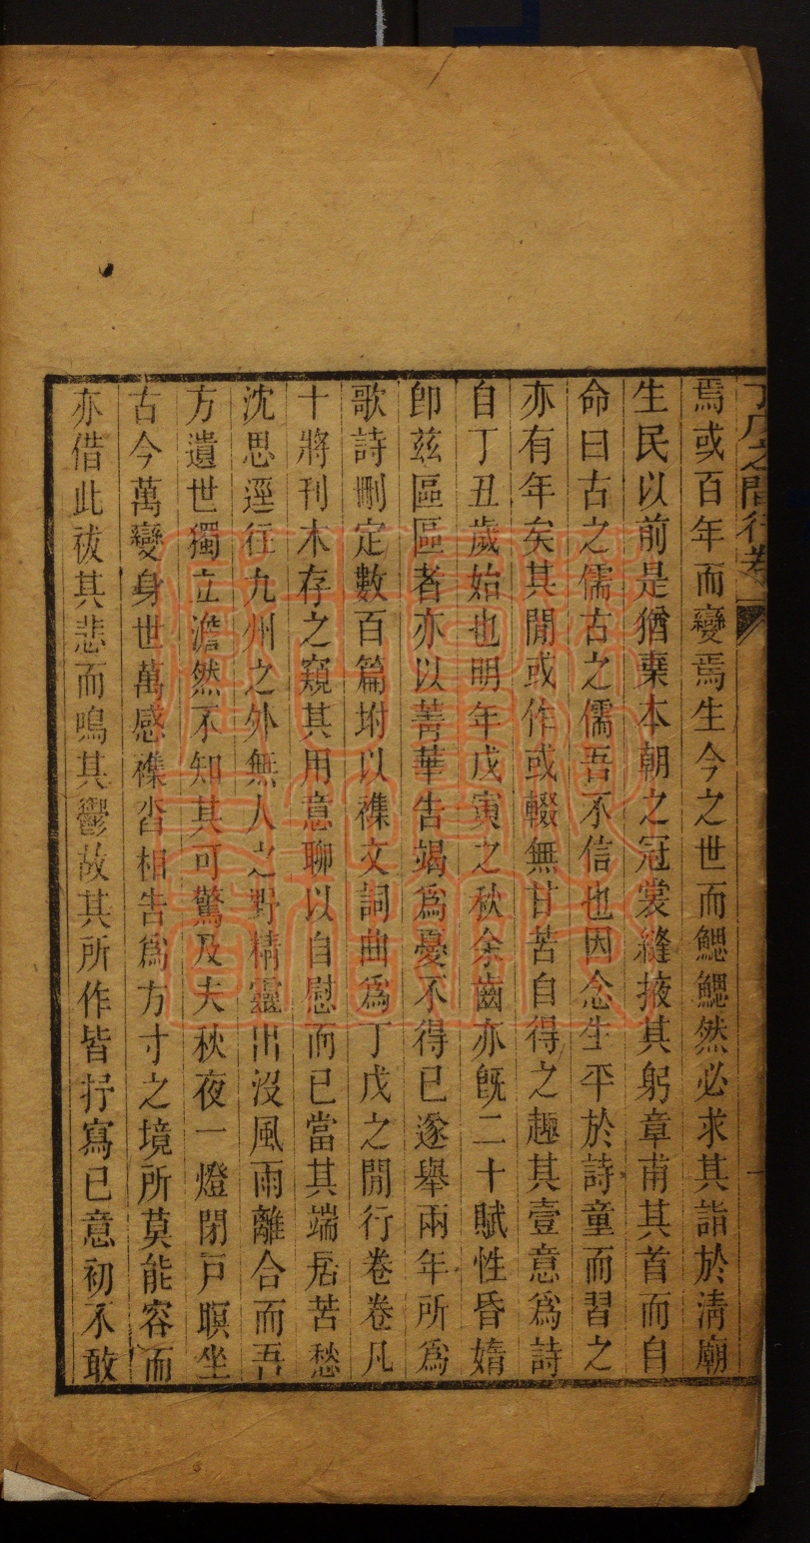 丁戊之閒行卷
焉或百年而變焉生今之世而鰓鰓然必求其詣於淸廟
生民以前是猶棄本朝之冠裳縫掖其躬章甫其首而自
命曰古之儒古之儒吾不信也因念生平於詩童而習之
亦有年矣其閒或作或輟無甘苦自得之趣其壹意爲詩
自丁丑歲始也明年戊寅之秋余齒亦旣二十賦性昏惰
卽茲區區者亦以菁華告竭爲憂不得已遂舉兩年所爲
歌詩刪定數百篇坿以襍文詞曲爲丁戊之閒行卷卷凡
十將刊木存之窺其用意聊以自慰而已當其端居苦愁
沈思逕往九州之外無人之野精靈出沒風雨離合而吾
方遺世獨立澹然不知其可驚及夫秋夜一燈閉戸瞑坐
古今萬變身世萬感襍沓相告爲方寸之境所莫能容而
亦借此祓其悲而鳴其鬱故其所作皆抒寫已意初不敢